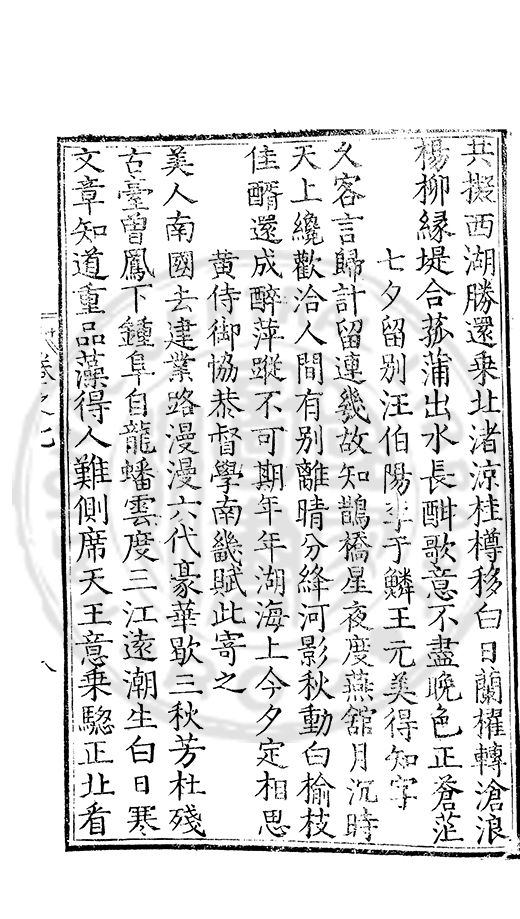 共擬西湖勝還乗北渚涼桂樽移白日蘭櫂轉滄浪
楊柳緣堤合菰蒲出水長酣歌意不盡晚色正蒼茫
七夕留別汪伯陽李于鱗王元美得知字
久客言歸計留連幾故知鵲橋星夜度燕舘月沉時
天上纔歡洽人間有別離晴分絳河影秋動白榆枝
佳醑還成醉萍蹤不可期年年湖海上今夕定相思
黄侍御恊恭督學南畿賦此寄之
美人南國去建業路漫漫六代豪華歇三秋芳杜殘
古臺曾鳳下鍾阜自龍蟠雲度三江遠潮生白日寒
文章知道重品藻得人難側席天王意乗驄正北看
卷之七
八